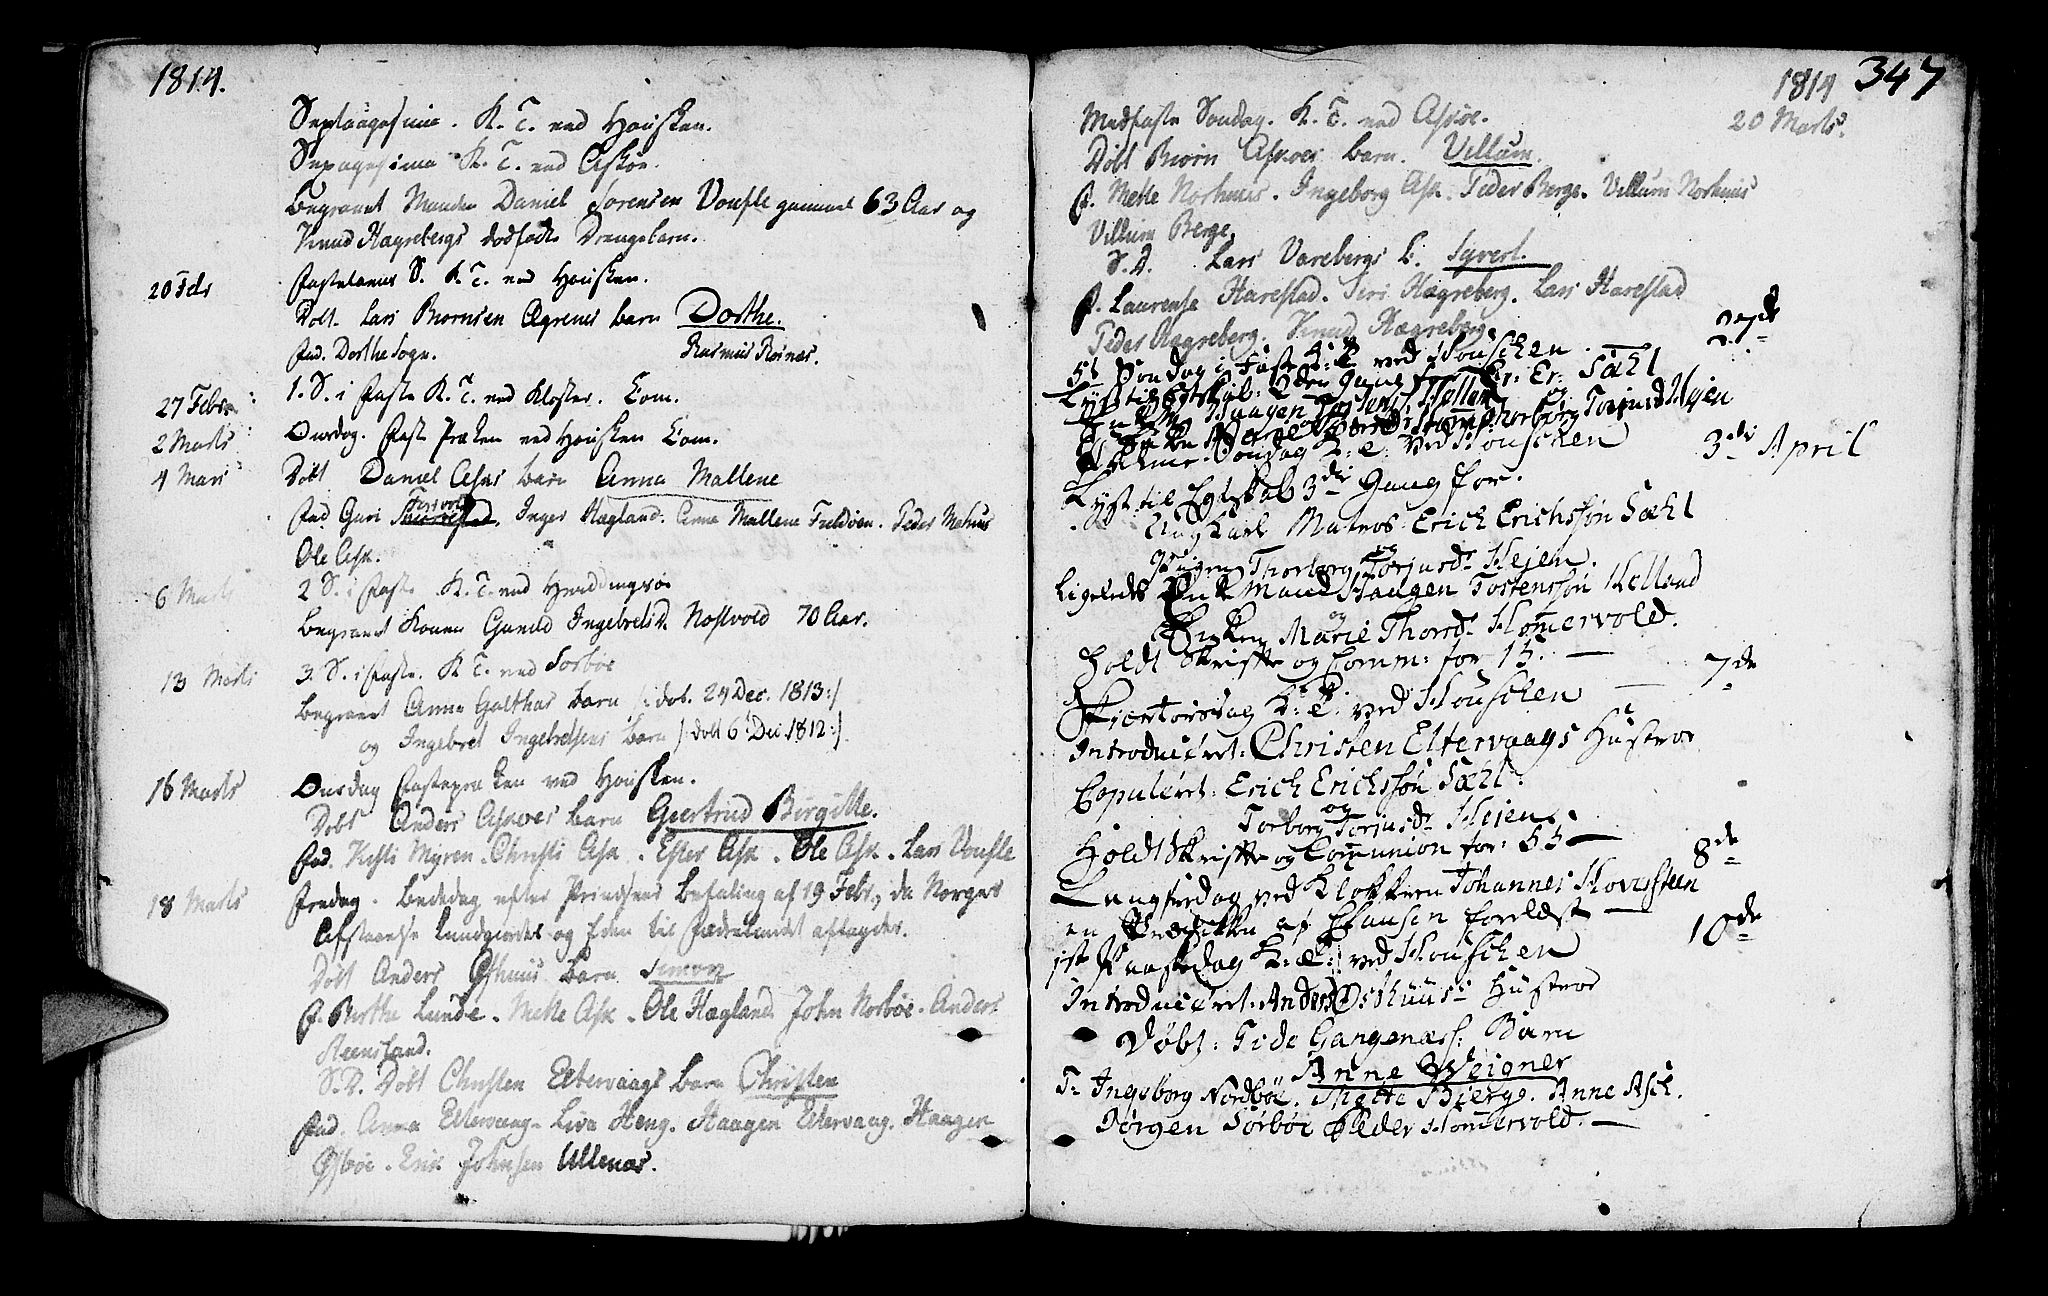 1814.
Septuagesima. K. T. ved Housken.
Sexagesima K. T. ved Askøe.
Begravet Manden Daniel Sørensen Voufle gammel 63 Aar og
Knud Hagrebergs dødfødte Drengebarn.
20 Feb Fastelavns S. K. T. ved Housken.
Døbt Lars Biørnsen Agrenes barn Dorthe.
Fad. Dorthe Sogn. Rasmus Reines.
27 Febr. 1. S. i Faste K. T. ved Kloster. Com.
2 Marts Onsdag. Faste Præken ved Housken Com.
4 Mars Døbt Daniel Asks barn Anna Mallene
Fad Guri Torvestad. Inger Hægland. Anna Mallene Fuldøen. Peder Mehus
Ole Ask.
6 Marts 2 S. i Faste K. T. ved Hviddingsøe
Begravet Konen Gunild Ingebrets D. Nostvold 70 Aar.
13 Marts 3. S. i Faste. K. T. ved Sørbøe
Begravet Anna Galthes barn /: døb. 24 Dec. 1813:/
og Ingebret Ingebretsens barn /: døbt 6t Dec 1812:/.
16 Marts Onsdag Fastepræken ved Housken.
Døbt Anders Askøes barn Geertrud Birgitte.
Fad. Kisti Myren. Christi Ask. Ester Ask. Ole Ask. Lars Voufle
18 Marts Fredag. Bededag efter Prindsens Befaling af 19 Febr., da Norges
Afstaaelse kundgiordes og Eden til Fædrelandet aflagdes.
Døbt Anders Østhuus barn Simon
F. Berthe Lunde. Mette Ask. Ole Hægland John Norbøe. Anders
Steensland.
S. D. Døbt Christen Eltervaags barn Christen
Fad. Anna Eltervaag. Liva Heng. Haagen Eltervaag. Haagen
Østbøe. Erik Johnsen Ullenæs.
1814 347
Midfaste Søndag. K. T. ved Askøe. 20 Marts.
Døbt Biørn Askøes barn. Villum.
F. Mette Norhuus. Ingeborg Ask. Peder Berge. Villum Norhuus
Villum Berge.
S. D. Lars Varebergs b. Syvert.
F. Laurense Harestad. Siri Hægreberg. Lars Harestad
Peder Hægreberg. Knud Hægreberg.
5t Søndag i Faste K: T: ved Houschen. 27de
Lyst til Egtskab: 2den Gang for Er: Er: Sæhl
Palme-Søndag K: T: ved Houschen 3die April
Lyst til Egtskab 3die Gang for.
Ung Karl Matros: Erich Erichssøn Sæhl
og
Pigen Thorborg Torjusdr. Hejen.
Ligeledes Enke Mand Haagen Tostenssøn Helland
og
Enken Marie Thorsdr. Homervold.
Holdt Skrifte og Comm: for 15. —
Skiertorsdag K: T: ved Houschen — 7de
Introduceret: Christen Eltervaags Hustroe
Copuleret: Erich Erichssøn Sæhl.
og
Torborg Torjusdr. Hejen.
Holdt Skrifte og Communion for: 55 —
Langfredag ved Klokkeren Johannes Hovesteen 8de
en Prædikken af Clausen forelæst —
1ste Paaskedag K: T: ved Houschen 10de
Introduceret: Anders Østhuus: Hustroe
Døbt: Tide Gangenæss: Barn
Anne Weigner
F: Ingeborg Nordbøe. Mette Bierge. Anne Asch.
Jørgen Sørbøe Peder Homervold. —